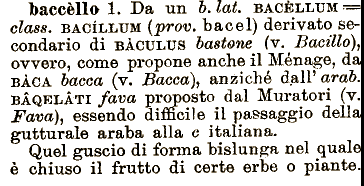 baccèllo 1. Da un b. lat. BACÈLLUM =
class. BACÍLLUM (prov. bacel) derivato se-
condario di BÀCULUS bastone (v. Bacillo),
ovvero, come propone anche il Ménage, da
BÀCA bacca (v. Bacca), anziché dall'arab.
BÂQELÂTI fava proposto dal Muratori (v.
Fava), essendo difficile il passaggio della
gutturale araba alla c italiana.
Quel guscio di forma bislunga nel quale
è chiuso il frutto di certe erbe o piante